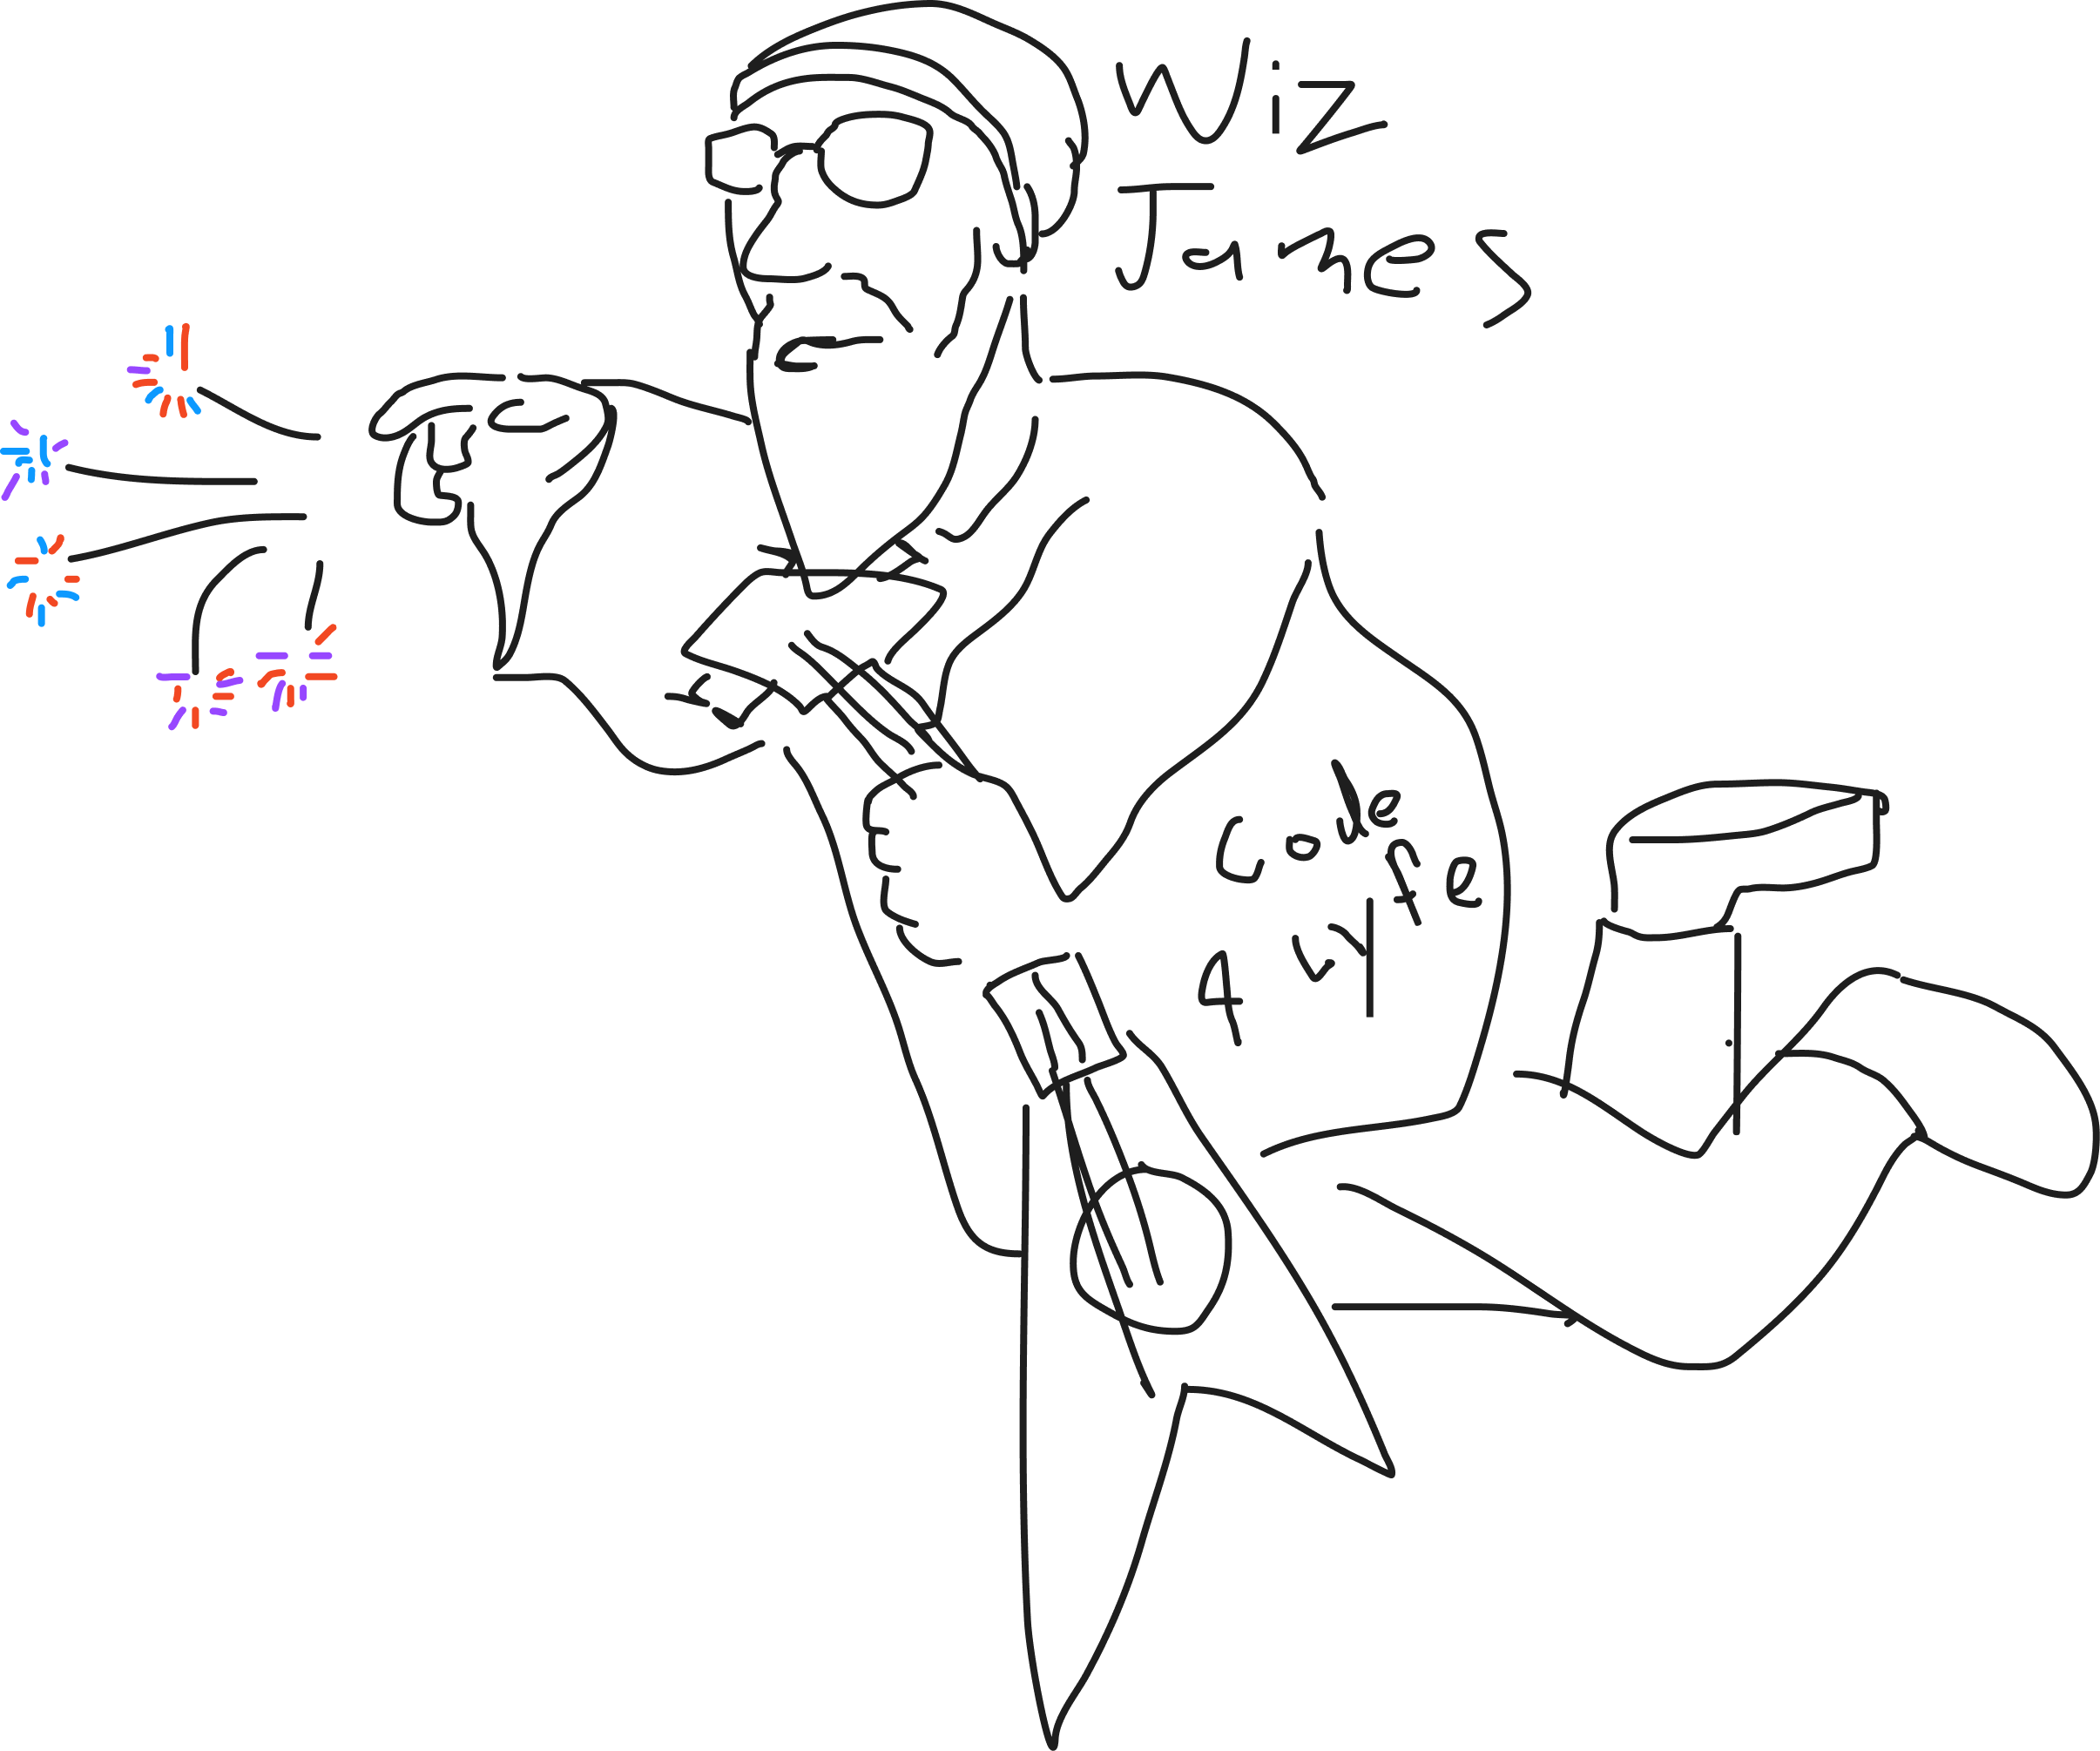 Wiz
James
Code
4 Lyfe